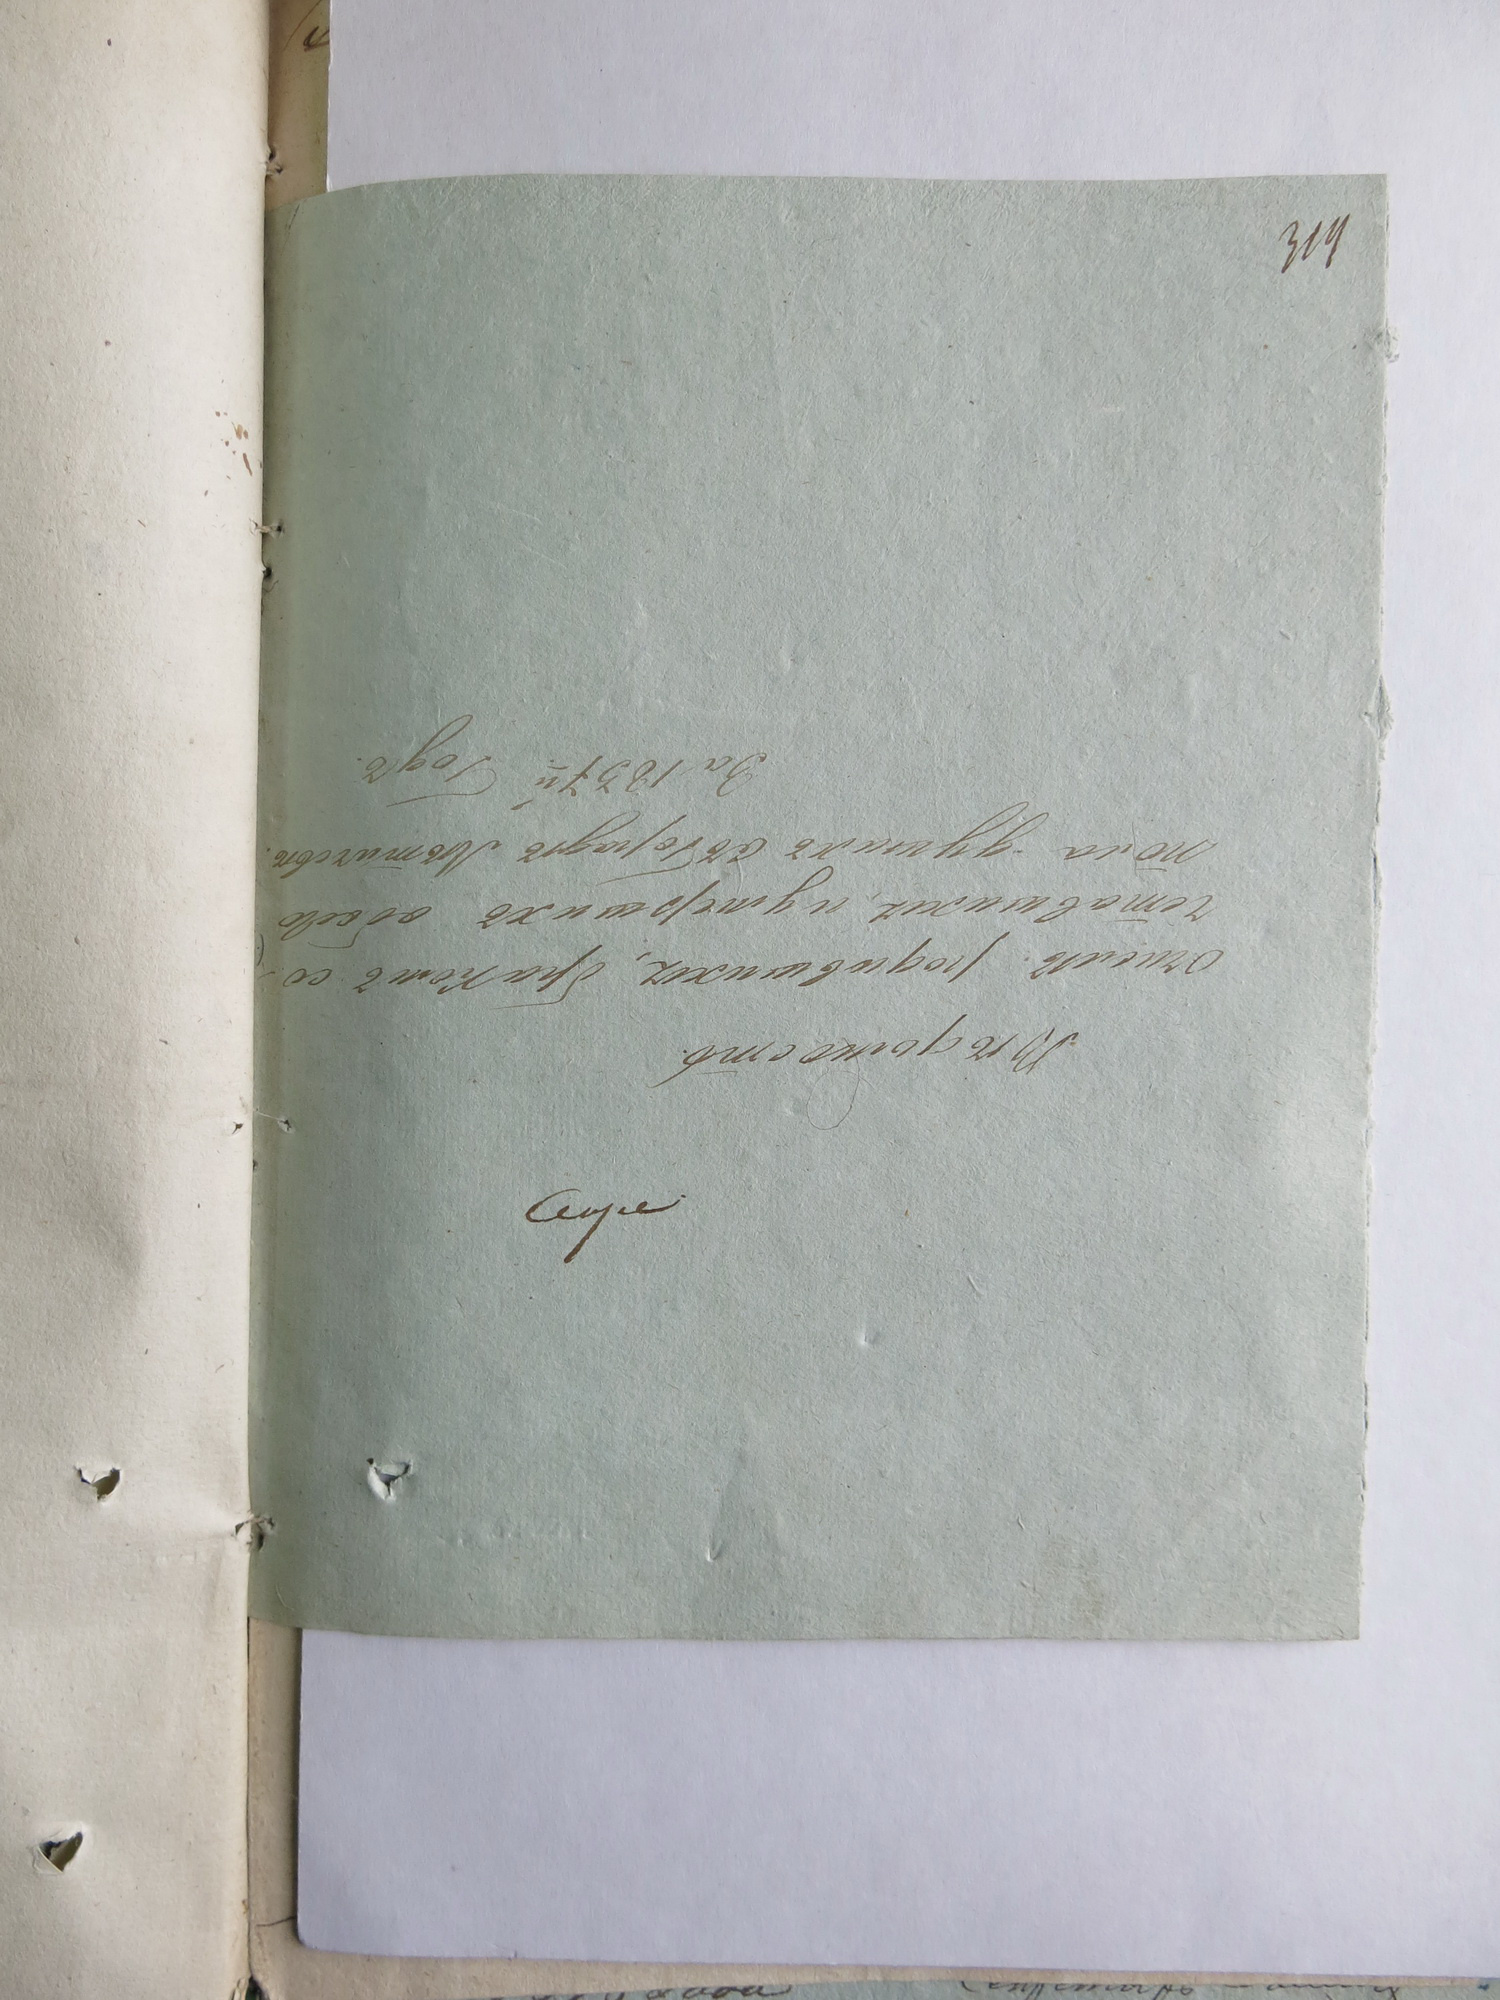 314
Вѣдомость.
Oчислѣ родившихся, бракомъ со
четавшихся, и умершихъ обоево
пола душахъ въ Городѣ Лѣтичевѣ.
За 1837й Годъ.